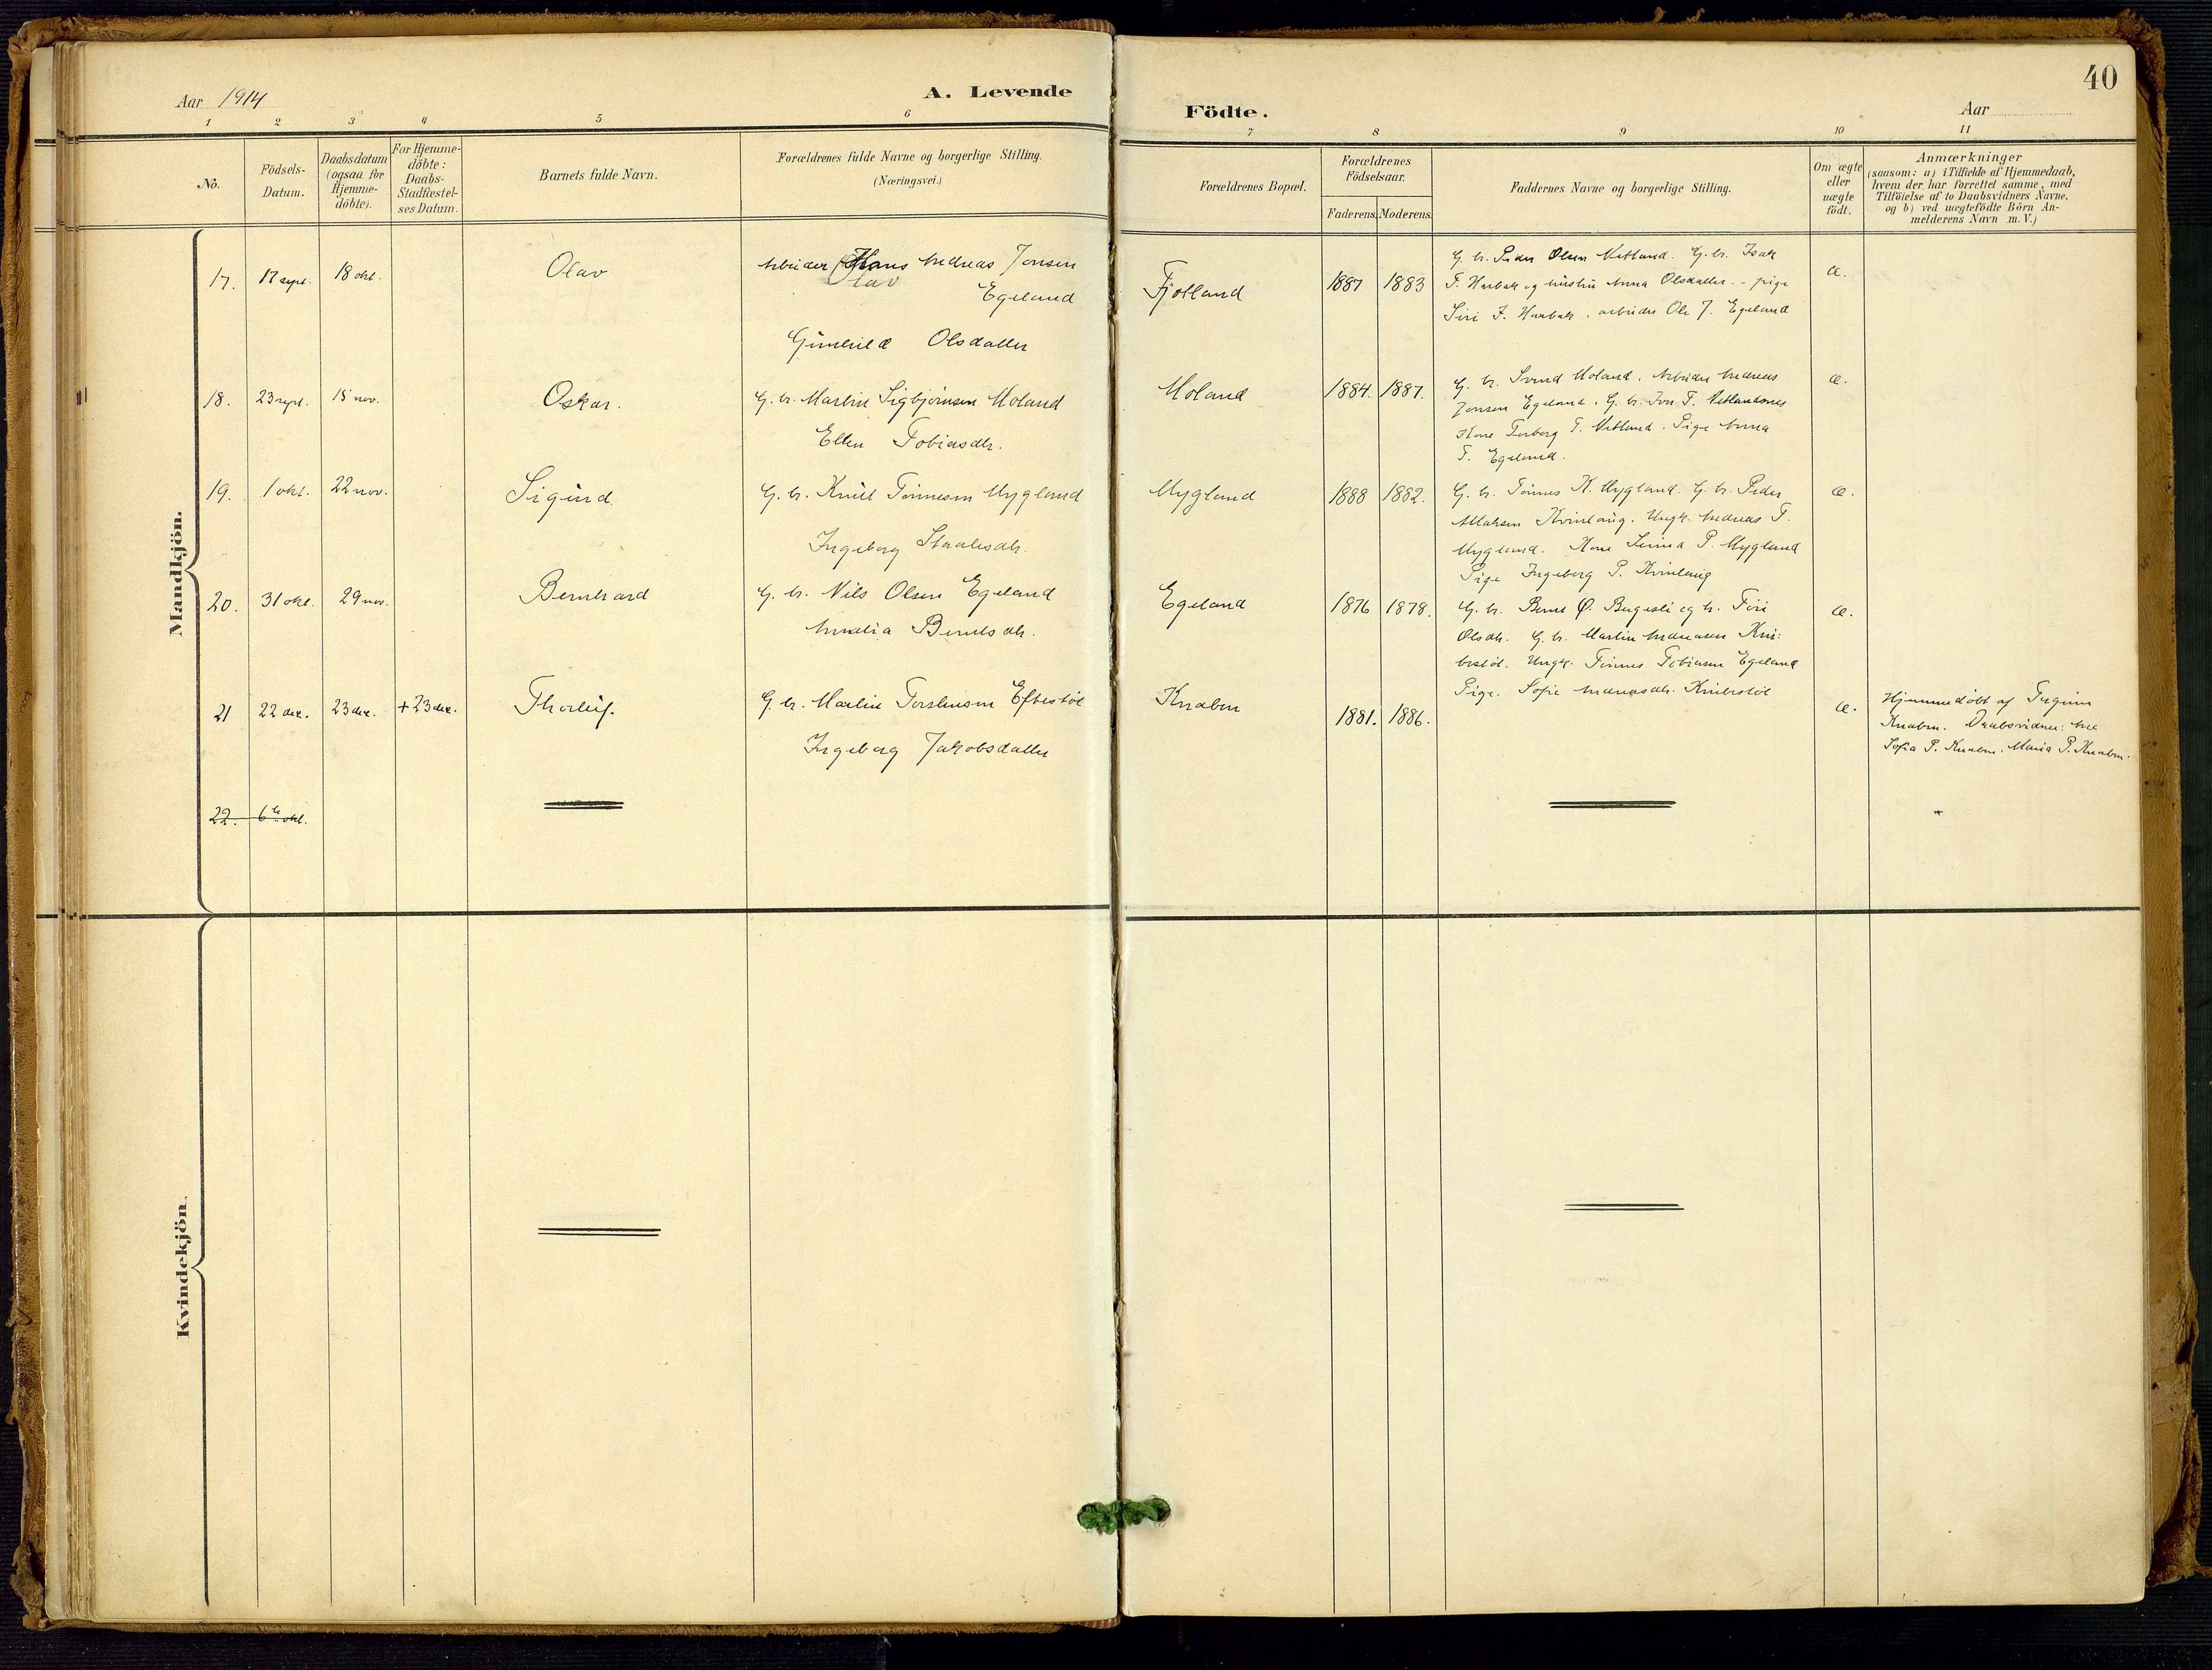 40
Aar 1914
A. Levende
Födte.
Aar
1 2 3 4 5 6
7 8 9 10 11
No.
Födsels-
Datum.
Daabsdatum
(ogsaa for
Hjemme-
döbte).
For Hjemme-
döbte:
Daabs-
Stadfæstel-
ses Datum.
Barnets fulde Navn.
Forældrenes fulde Navne og borgerlige Stilling.
(Næringsvei.)
Forældrenes Bopæl.
Forældrenes
Födselsaar.
Faderens. Moderens.
Faddernes Navne og borgerlige Stilling.
Om ægte
eller
uægte
födt.
Anmærkninger
(saasom: a) i Tilfælde af Hjemmedaab,
hvem der har forrettet samme, med
Tilföielse af to Daabsvidners Navne.
og b) ved uægtefödte Börn An-
melderens Navn m. V.)
Mandkjön.
17. 17 sept. 18 okt. Olav
Arbeider Hans Andreas Jonsen
Egeland
Gunhild Olsdatter
Fjotland 1887 1883
G. br. Peder Olsen Netland. G. br. Isak
T. Haabak og hustru Anna Olsdatter. - pige
Siri I. Haabak. arbeider Ole J. Egeland
æ.
18. 23 sept. 15 nov. Oskar.
G. br. Martin Sigbjørnsen Moland
Ellen Tobiasdtr.
Moland 1884. 1887.
G. br. Svend Moland. Arbeider Andreas
Jonsen Egeland. G. br. T. Netlandsnes
Kone Torborg T. Netland. Pige Anna
T. Egeland.
æ.
19. 1 okt. 22 nov. Sigurd
G. br. Knut Tønnesen Mygland
Ingeborg Staalesdtr.
Mygland 1888 1882.
G. br. Tønnes K. Mygland. G. br. Peder
Kvinlaug. Ungk. Andreas T.
Mygland. Kone P. Mygland
Pige Ingeborg P. Kvinlaug
æ.
20. 31 okt. 29 nov. Bernhard
G. br. Nils Olsen Egeland
Amalia Berntsdtr.
Egeland 1876 1878.
G. br. Bernt Ø. Bergesli og h. Tøri
Olsdtr. G. br. Martin Andreasen Kni-
bestøl. Ungk. Tønnes Tobiasen Egeland
Pige. Sofie Andreasdtr. Knibestøl
æ.
21 22 dec. 23 dec. + 23 dec. Thorleif.
G. br. Martin Torstensen Eftestøl
Ingeborg Jakobsdatter
Knaben 1881. 1886.
æ.
Hjemmedøbt af Torgrim
Knaben. Daabsvidner:
Sofia P. Knaben. Maria P. Knaben.
22. 6te okt.
Kvindekjön.